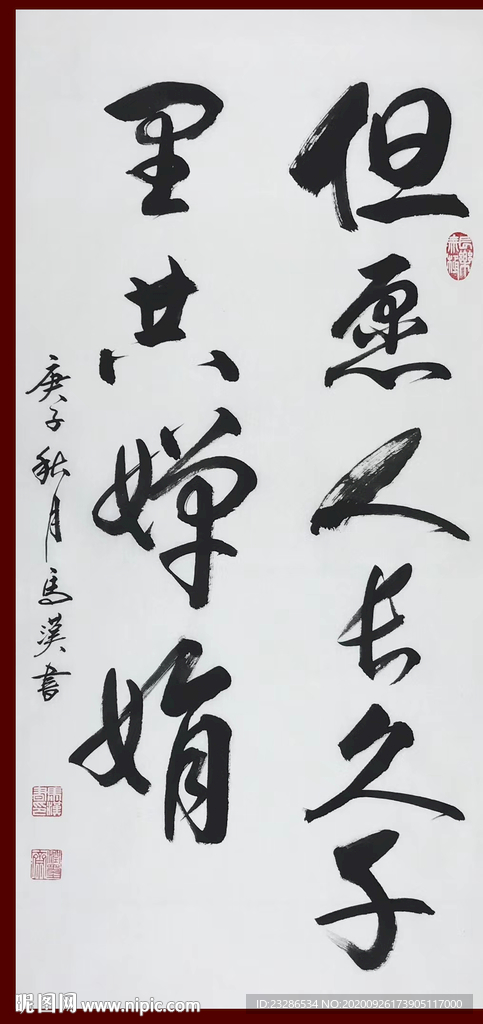 但愿人长久子
里共婵娟
庚子秋月馬漢書
昵图网 www.nipic.com
ID:23286534 NO:20200926173905117000